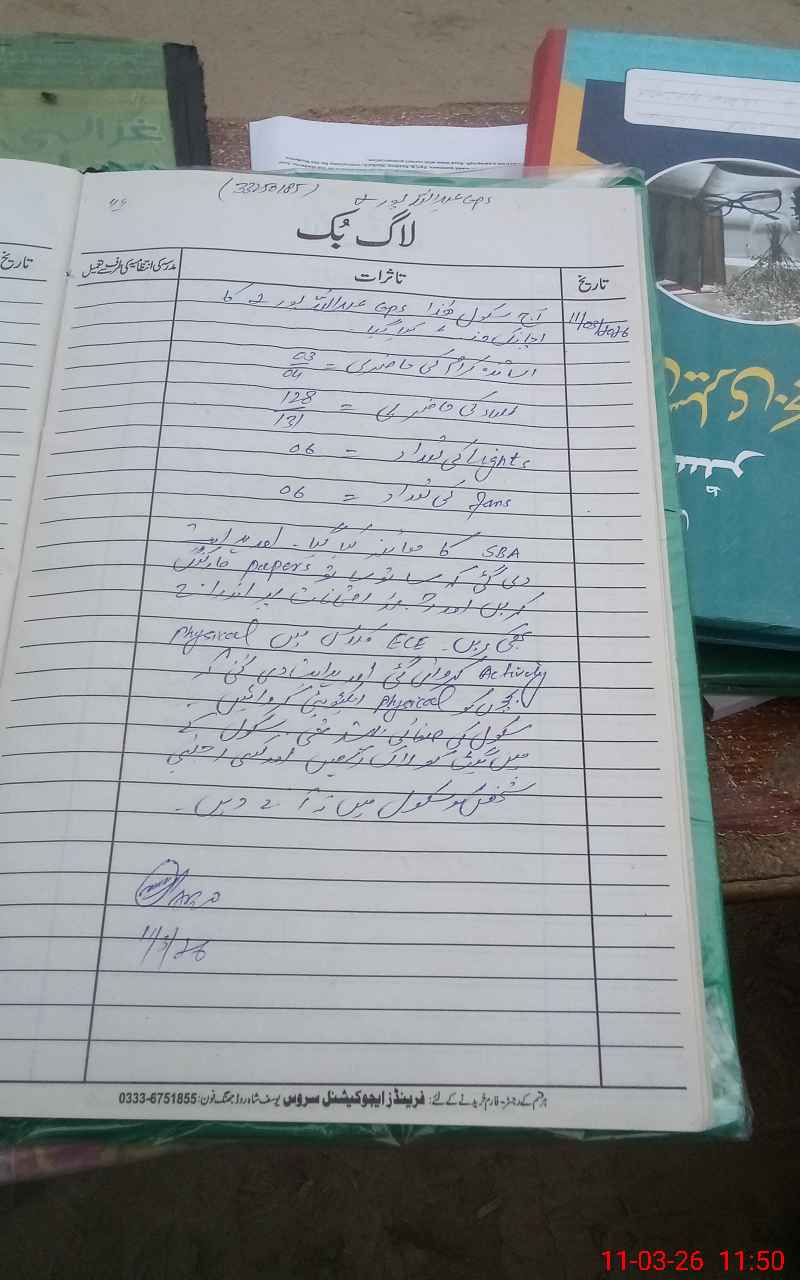 (33250185)
GPS
لاگ بُک
تاریخ
تاثرات
مدرسہ کی انتظامیہ کی طرف سے تعمیل
تاریخ
11/03/2026
آج سکول ھٰذا GPS کا
اچانک وزٹ کیا گیا۔
اساتذہ کرام کی حاضری = 03/04
طلباء کی حاضری = 128/131
Lights کی تعداد = 06
Fans کی تعداد = 06
SBA کا معائنہ کیا گیا۔ اور ہدایت
دی گئی کہ ساتھ ساتھ papers مارکنگ
کریں اور
بھی کریں۔ ECE کلاس میں Physical
Activity کروائی گئی اور ہدایت دی گئی کہ
بچوں کو Physical ایکٹیویٹی کروائیں۔
سکول کی صفائی تھی۔ سکول کے
مین گیٹ کو لاک رکھیں اور کسی اجنبی
شخص کو سکول میں نہ آنے دیں۔
11/3/26
ہر قسم کے رجسٹر۔ فارم خریدنے کے لئے: فرینڈز ایجوکیشنل سروس یوسف شاہ روڈ جھنگ فون: 0333-6751855
11-03-26 11:50